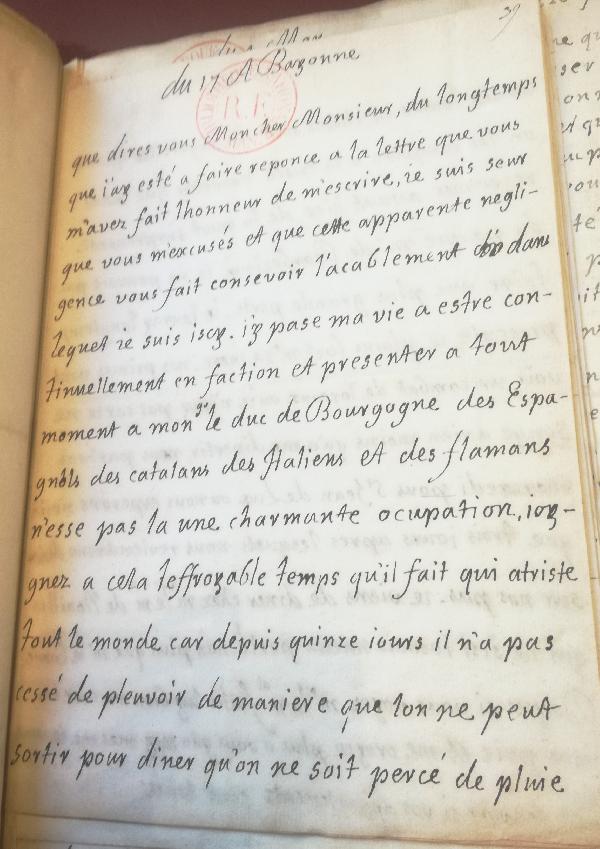 39
du 17 A Bayonne
que dires vous Mon cher Monsieur, du longtemps
que i'ay esté a faire reponce a la lettre que vous
m'avez fait lhonneur de m'escrire, ie suis seur
que vous m'excusés et que cette apparente negli-
gence vous fait consevoir l'acablement dans
lequel ie suis iscy. i'y pase ma vie a estre con-
tinuellement en faction et presenter a tout
moment a mon gr le duc de Bourgogne des Espa-
gnols des catalans des Italiens et des flamans
n'esse pas la une charmante ocupation, ioy-
gnez a cela leffroyable temps qu'il fait qui atriste
tout le monde car depuis quinze iours il n'a pas
cessé de pleuvoir de maniere que lon ne peut
sortir pour diner qu'on ne soit percé de pluie